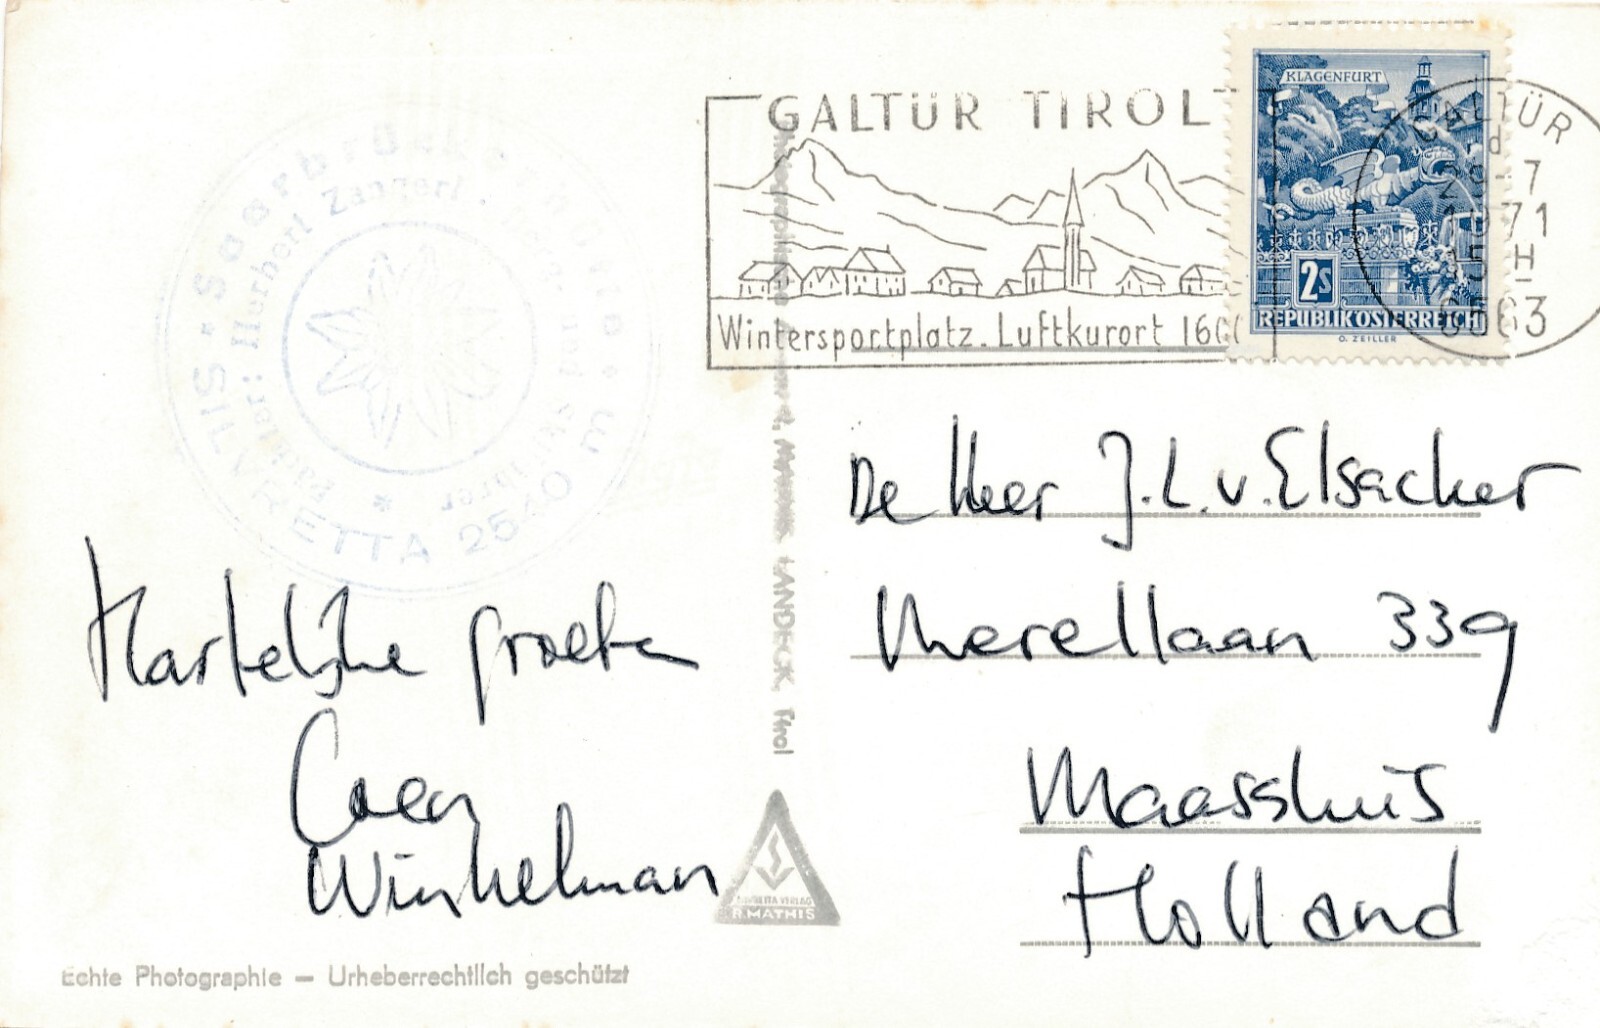 GALTÜR TIROL
Wintersportplatz. Luftkurort
KLAGENFURT
2S
REPUBLIK ÖSTERREICH
O. ZEILLER
GALTÜR
d
29-7
1971
15 H
6563
Saarbrücker Hütte
SILVRETTA 2540 m
Herbert Zangerl
LANDECK, Tirol
De Heer J.L.v. Elsacker
Merellaan 339
Maassluis
Holland
Hartelijke groeten
Coen
Winkelman
SILVRETTA VERLAG
R. MATHIS
Echte Photographie – Urheberrechtlich geschützt